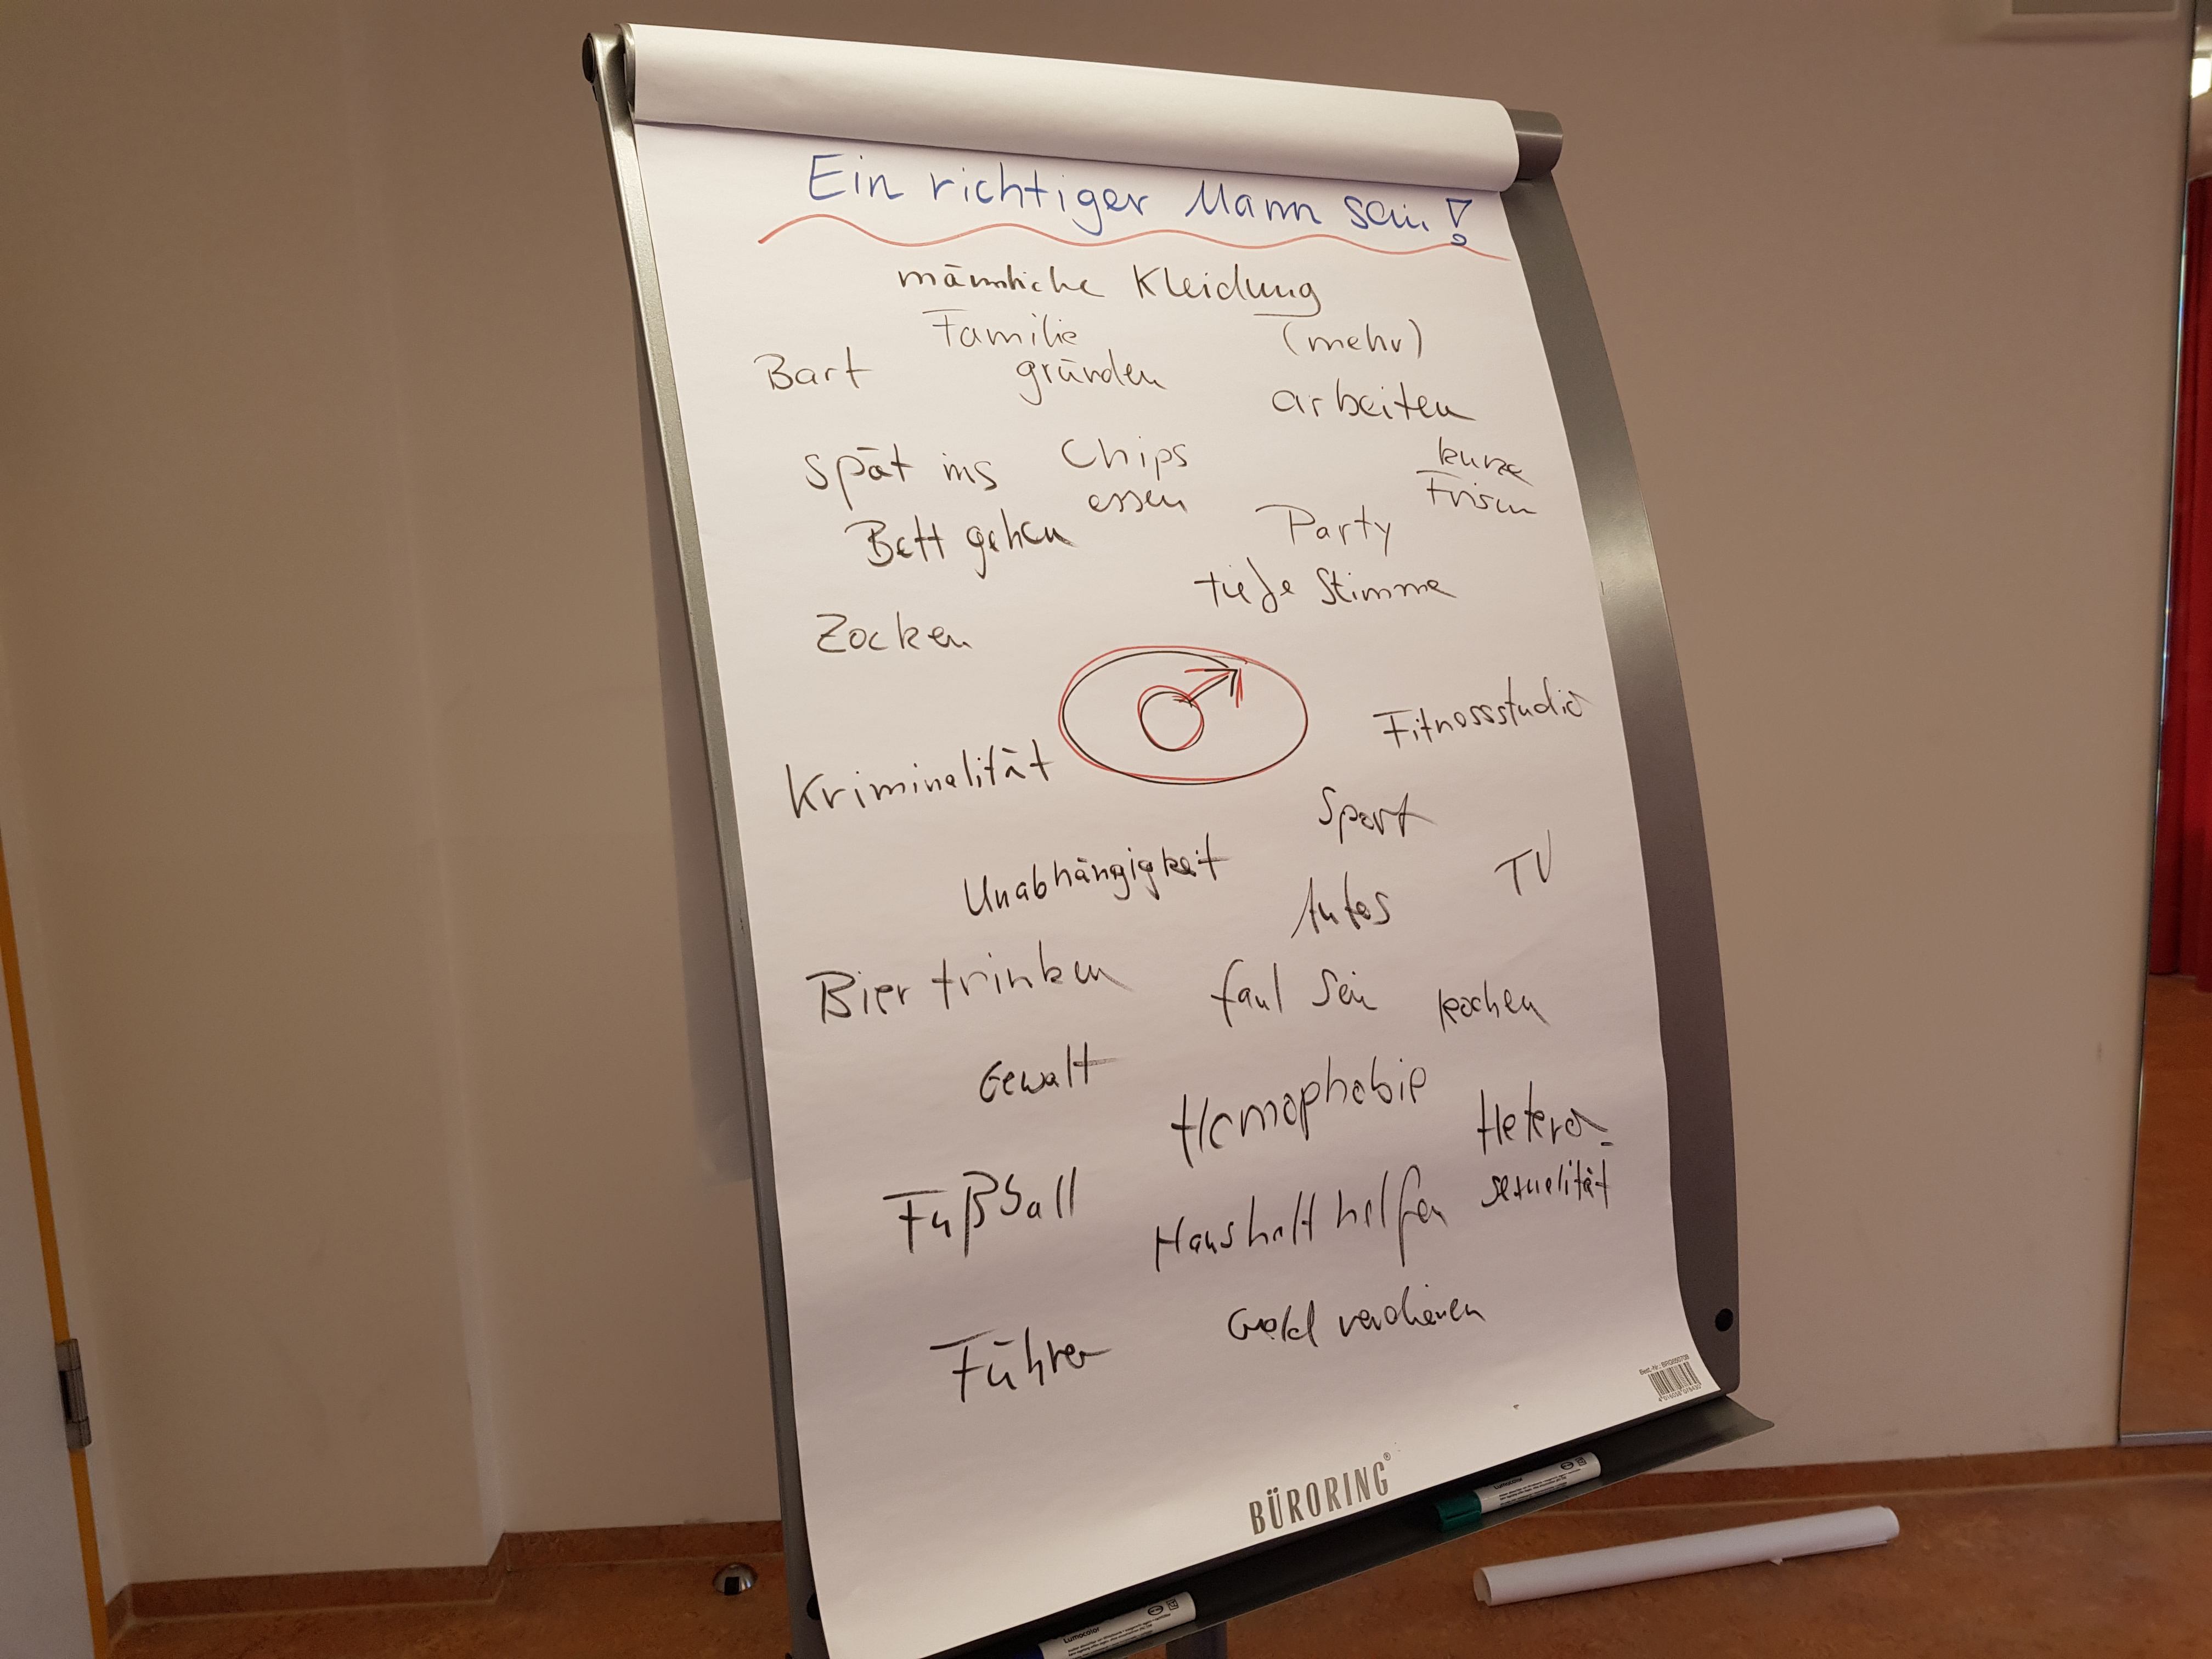 Ein richtiger Mann sein!
männliche Kleidung
Familie
gründen
(mehr)
arbeiten
Bart
spät ins
Bett gehen
Chips
essen
kurze
Frisur
Party
tiefe Stimme
Zocken
Fitnessstudio
Kriminalität
Sport
Unabhängigkeit
Autos
TV
Bier trinken
faul sein
kochen
Gewalt
Homophobie
Hetero-
sexualität
Fußball
Haushalt helfen
Führer
Geld verdienen
BÜRORING®
Lumocolor
Lumocolor